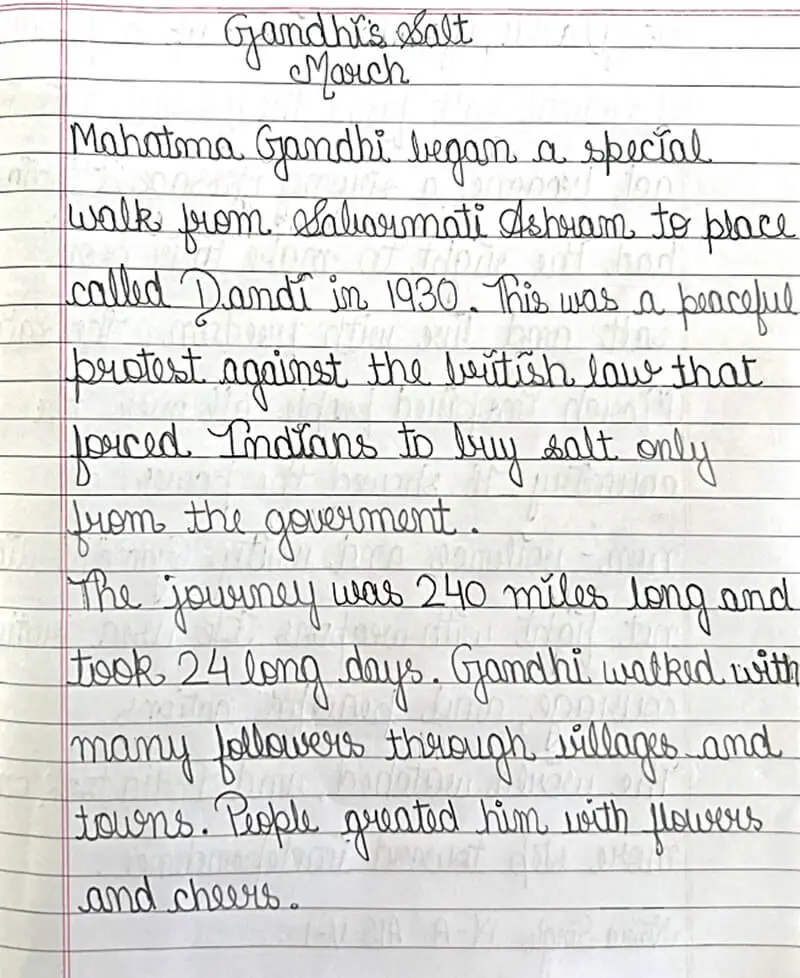 Gandhi's Salt
March
Mahatma Gandhi began a special
walk from Sabarmati Ashram to place
called Dandi in 1930. This was a peaceful
protest against the british law that
forced Indians to buy salt only
from the goverment.
The journey was 240 miles long and
took 24 long days. Gandhi walked with
many followers through villages and
towns. People greated him with flowers
and cheers.